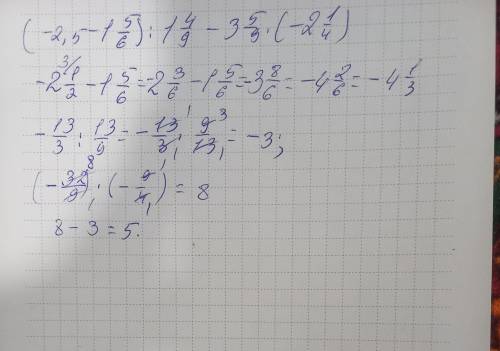 (-2,5 - 1 5/6) : 1 4/9 - 3 5/9 · (-2 1/4)
-2 3/ 1/2 - 1 5/6 = -2 3/6 - 1 5/6 = -3 8/6 = -4 2/6 = -4 1/3
-13/3 : 13/9 = -13/3 · 9/13 = -3;
(-32/9) · (-9/4) = 8
8 - 3 = 5.